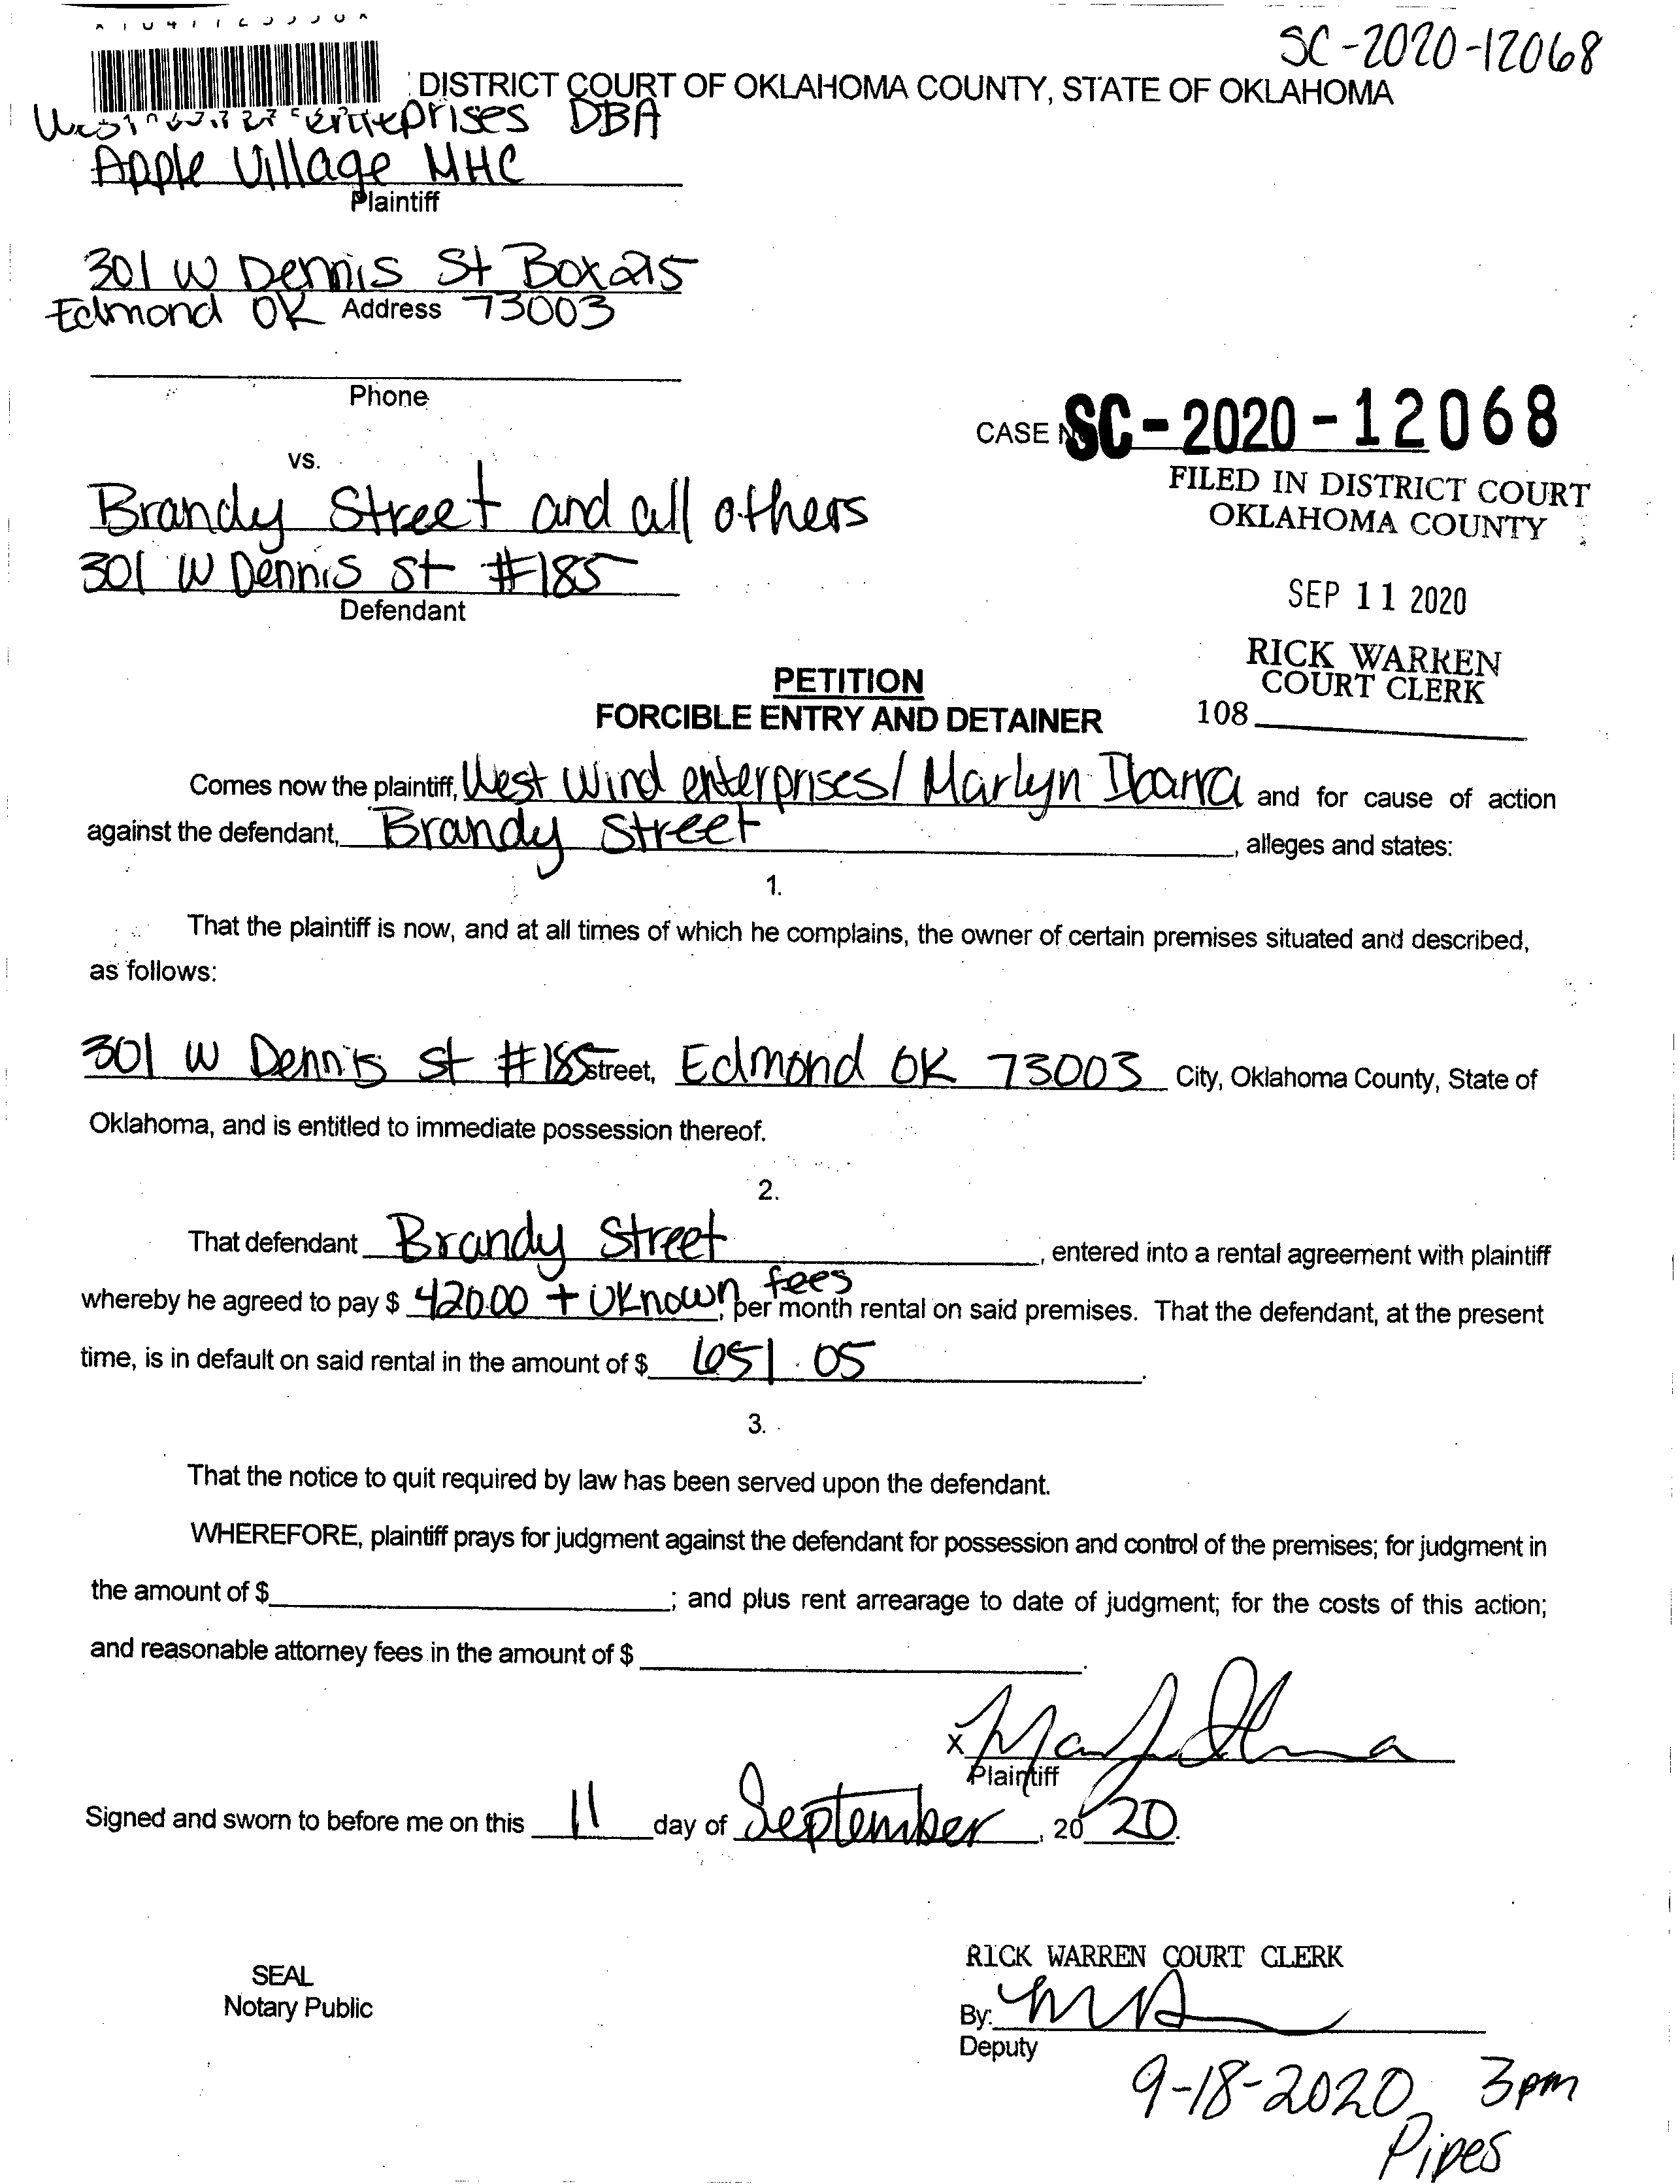 SC-2020-12068
DISTRICT COURT OF OKLAHOMA COUNTY, STATE OF OKLAHOMA
enterprises DBA
Apple Village MHC
Plaintiff
301 W Dennis St Box 215
Edmond OK Address 73003
Phone
CASE SC-2020-12068
vs.
FILED IN DISTRICT COURT
OKLAHOMA COUNTY
Brandy Street and all others
301 W Dennis St #185
Defendant
SEP 11 2020
RICK WARREN
COURT CLERK
108
PETITION
FORCIBLE ENTRY AND DETAINER
Comes now the plaintiff, West Wind enterprises/ Marlyn Ibarra and for cause of action
against the defendant, Brandy Street, alleges and states:
1.
That the plaintiff is now, and at all times of which he complains, the owner of certain premises situated and described,
as follows:
301 W Dennis St #185 Street, Edmond OK 73003 City, Oklahoma County, State of
Oklahoma, and is entitled to immediate possession thereof.
2.
That defendant Brandy Street, entered into a rental agreement with plaintiff
whereby he agreed to pay $ 420.00 + Uknown fees, per month rental on said premises. That the defendant, at the present
time, is in default on said rental in the amount of $ 651.05.
3.
That the notice to quit required by law has been served upon the defendant.
WHEREFORE, plaintiff prays for judgment against the defendant for possession and control of the premises; for judgment in
the amount of $ ; and plus rent arrearage to date of judgment; for the costs of this action;
and reasonable attorney fees in the amount of $ .
X
Plaintiff
Signed and sworn to before me on this 11 day of September, 2020.
RICK WARREN COURT CLERK
SEAL
Notary Public
By:
Deputy
9-18-2020 3pm
Pipes